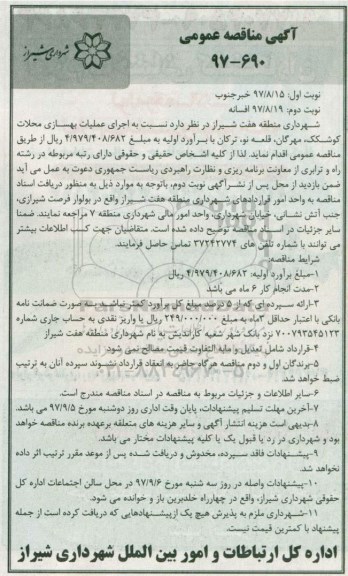 آگهی مناقصه عمومی
۹۷-۶۹۰
شهرداری شیراز
نوبت اول: ۹۷/۸/۱۵ خبرجنوب
نوبت دوم: ۹۷/۸/۱۹ افسانه
شهرداری منطقه هفت شیراز در نظر دارد نسبت به اجرای عملیات بهسازی محلات
کوشکک، مهرگان، قلعه نو، ترکان با برآورد اولیه به مبلغ ۴/۹۷۹/۴۰۸/۶۸۲ ریال از طریق
مناقصه عمومی اقدام نماید. لذا از کلیه اشخاص حقیقی و حقوقی دارای رتبه مربوطه در رشته
راه و ترابری از معاونت برنامه ریزی و نظارت راهبردی ریاست جمهوری دعوت به عمل می آید
ضمن بازدید از محل پس از نشرآگهی نوبت دوم، باتوجه به موارد ذیل به منظور دریافت اسناد
مناقصه به واحد امور قراردادهای شهرداری منطقه هفت شیراز واقع در بولوار فرصت شیرازی،
جنب آتش نشانی، خیابان شهرداری، واحد امور مالی شهرداری منطقه ۷ مراجعه نمایند. ضمنا
سایر جزئیات در اسناد مناقصه توضیح داده شده است. متقاضیان جهت کسب اطلاعات بیشتر
می توانند با شماره تلفن های ۳۷۲۴۲۷۷۴ تماس حاصل فرمایند.
شرایط مناقصه:
۱-مبلغ برآورد اولیه: ۴/۹۷۹/۴۰۸/۶۸۲ ریال
۲-مدت انجام کار ۶ ماه می باشد
۳-ارائه سپرده ای که از ۵ درصد مبلغ کل برآورد کمتر نباشد به صورت ضمانت نامه
بانکی با اعتبار حداقل ۳ماه به مبلغ ۲۴۹/۰۰۰/۰۰۰ ریال یا واریز نقدی به حساب جاری شماره
۷۰۰۷۹۳۵۴۵۱۲۳ نزد بانک شهر شعبه کاراندیش به نام شهرداری منطقه هفت شیراز
۴-قرارداد شامل تعدیل و مابه التفاوت قیمت مصالح نمی شود
۵-برندگان اول و دوم مناقصه هرگاه حاضر به انعقاد قرارداد نشوند سپرده آنان به ترتیب
ضبط خواهد شد.
۶-سایر اطلاعات و جزئیات مربوط به مناقصه در اسناد مناقصه مندرج است.
۷-آخرین مهلت تسلیم پیشنهادات، پایان وقت اداری روز دوشنبه مورخ ۹۷/۹/۵ می باشد.
۸-بدیهی است هزینه انتشار آگهی و سایر هزینه های متعلقه برعهده برنده مناقصه خواهد
بود و شهرداری در رد یا قبول یک یا کلیه پیشنهادات مختار می باشد.
۹-پیشنهادات فاقد سپرده، مخدوش و دریافت شده پس از موعد مقرر ترتیب اثر داده
نخواهد شد.
۱۰-پیشنهادات واصله در روز سه شنبه مورخ ۹۷/۹/۶ در محل سالن اجتماعات اداره کل
حقوقی شهرداری شیراز، واقع در چهارراه خلدبرین باز و خوانده می شود.
۱۱-شهرداری ملزم به پذیرش هیچ یک ازپیشنهادهایی که دریافت کرده است از جمله
پیشنهاد با کمترین قیمت نیست.
اداره کل ارتباطات و امور بین الملل شهرداری شیراز